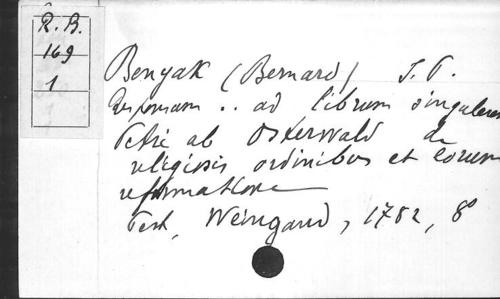 R. B.
169
1
Benyak (Bernard) S. P.
.. ad librum singularem
Petri ab Osterwald de
religiosis ordinibus et eorum
reformatione
Pest, Weingand, 1782, 8°